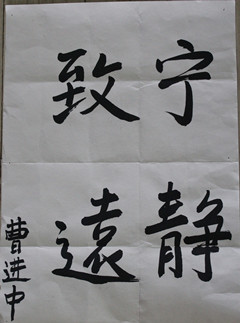 宁静
致遠
曹进中